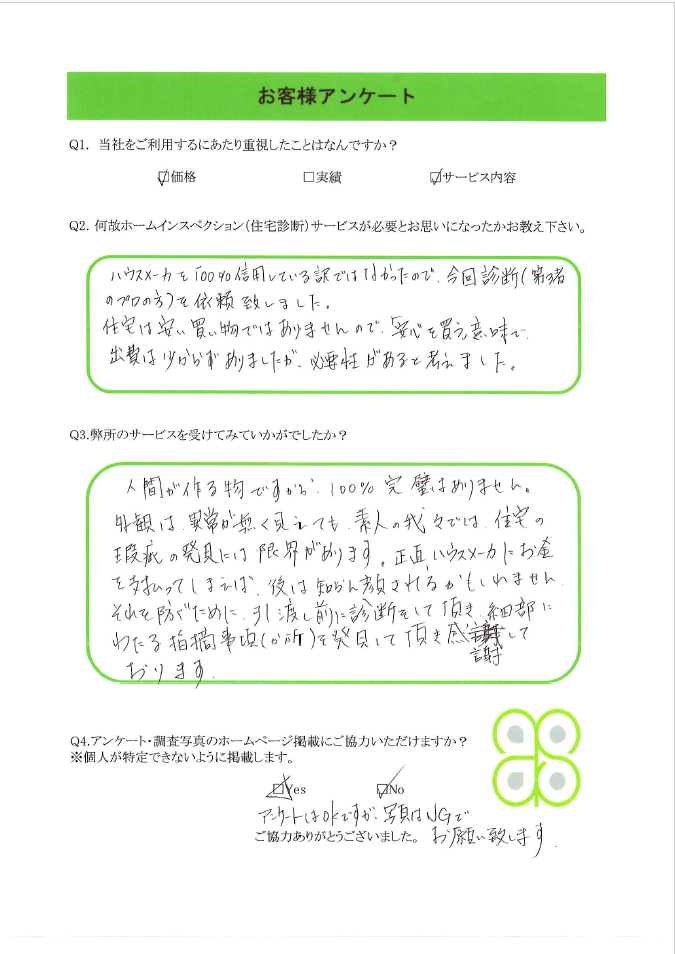 お客様アンケート
Q1. 当社をご利用するにあたり重視したことはなんですか？
☑価格 □実績 ☑サービス内容
Q2. 何故ホームインスペクション（住宅診断）サービスが必要とお思いになったかお教え下さい。
ハウスメーカを100%信用している訳ではなかったので、今回診断（第3者
のプロの方）を依頼致しました。
住宅は安い買い物ではありませんので、安心を買う意味で、
出費は少なからずありましたが、必要性があると考えました。
Q3.弊所のサービスを受けてみていかがでしたか？
人間が作る物ですから、100%完璧はありません。
外観は、異常が無く見えても、素人の我々では、住宅の
瑕疵の発見には限界があります。正直、ハウスメーカにお金
を支払ってしまえば、後は知らん顔されるかもしれません。
それを防ぐために、引渡し前に診断をして頂き、細部に
わたる指摘事項（か所）を発見して頂き感謝して
おります。
Q4.アンケート・調査写真のホームページ掲載にご協力いただけますか？
※個人が特定できないように掲載します。
☑Yes ☑No
アンケートはOKですが、写真はNGで
ご協力ありがとうございました。 お願い致します。